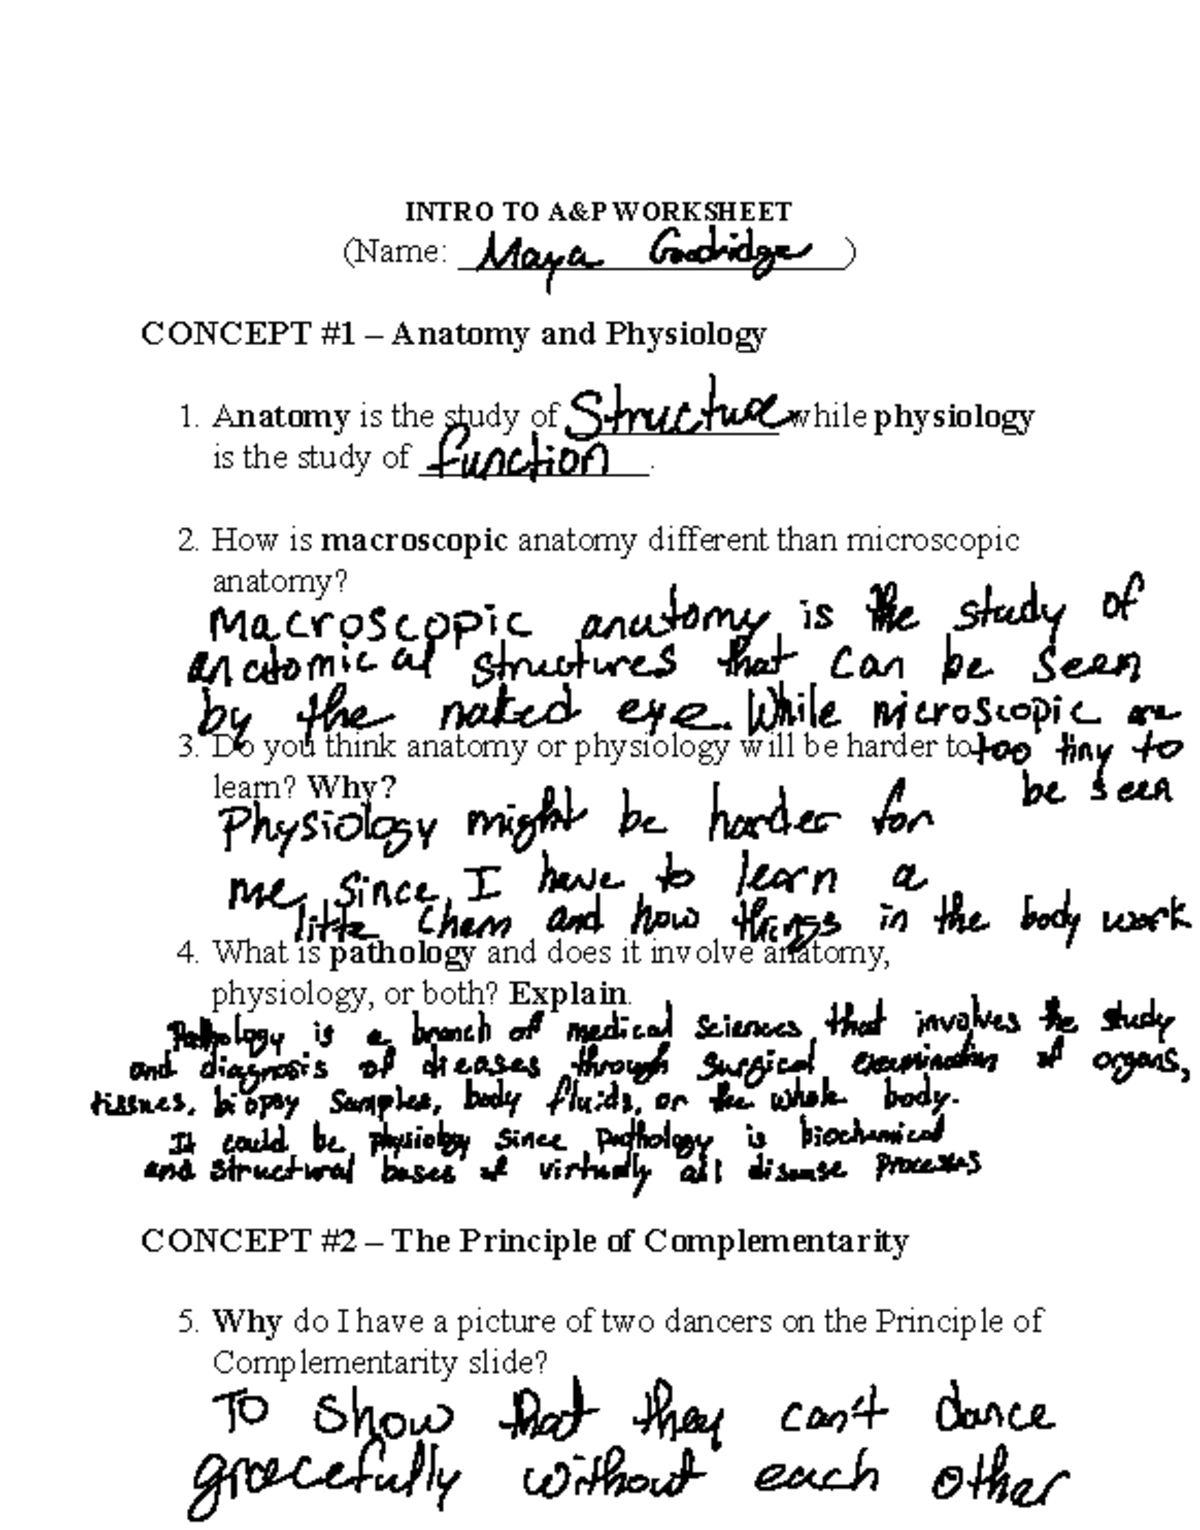 INTRO TO A&P WORKSHEET
(Name: Maya Goodridge)
CONCEPT #1 – Anatomy and Physiology
1. Anatomy is the study of Structure while physiology
is the study of function.
2. How is macroscopic anatomy different than microscopic
anatomy?
Macroscopic anatomy is the study of
anatomical structures that can be seen
by the naked eye. While microscopic are
3. Do you think anatomy or physiology will be harder to too tiny to
learn? Why? be seen
Physiology might be harder for
me, since I have to learn a
little chem and how things in the body work
4. What is pathology and does it involve anatomy,
physiology, or both? Explain.
Pathology is a branch of medical sciences that involves the study
and diagnosis of dieases through surgical examination of organs,
tissues, biopsy samples, body fluids, or the whole body.
It could be physiology since pathology is biochemical
and structural bases of virtually all disease processes
CONCEPT #2 – The Principle of Complementarity
5. Why do I have a picture of two dancers on the Principle of
Complementarity slide?
To show that they can't dance
gracefully without each other